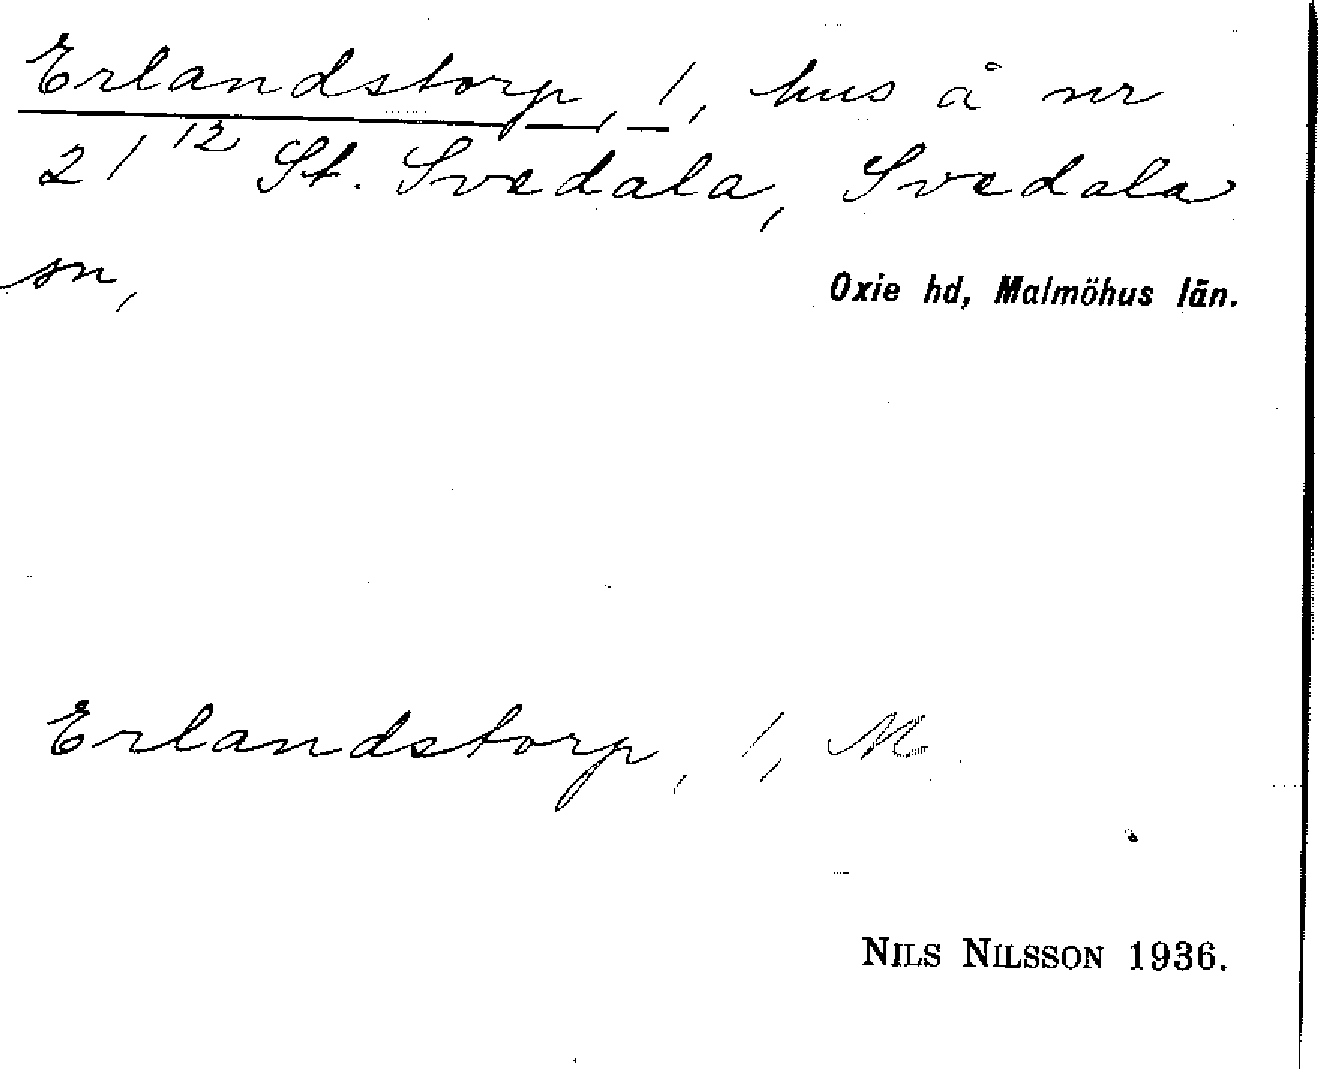 Erlandstorp, 1, hus å nr
21¹² St. Svedala, Svedala
sn,
Oxie hd, Malmöhus län.
Erlandstorp, 1, M
NILS NILSSON 1936.